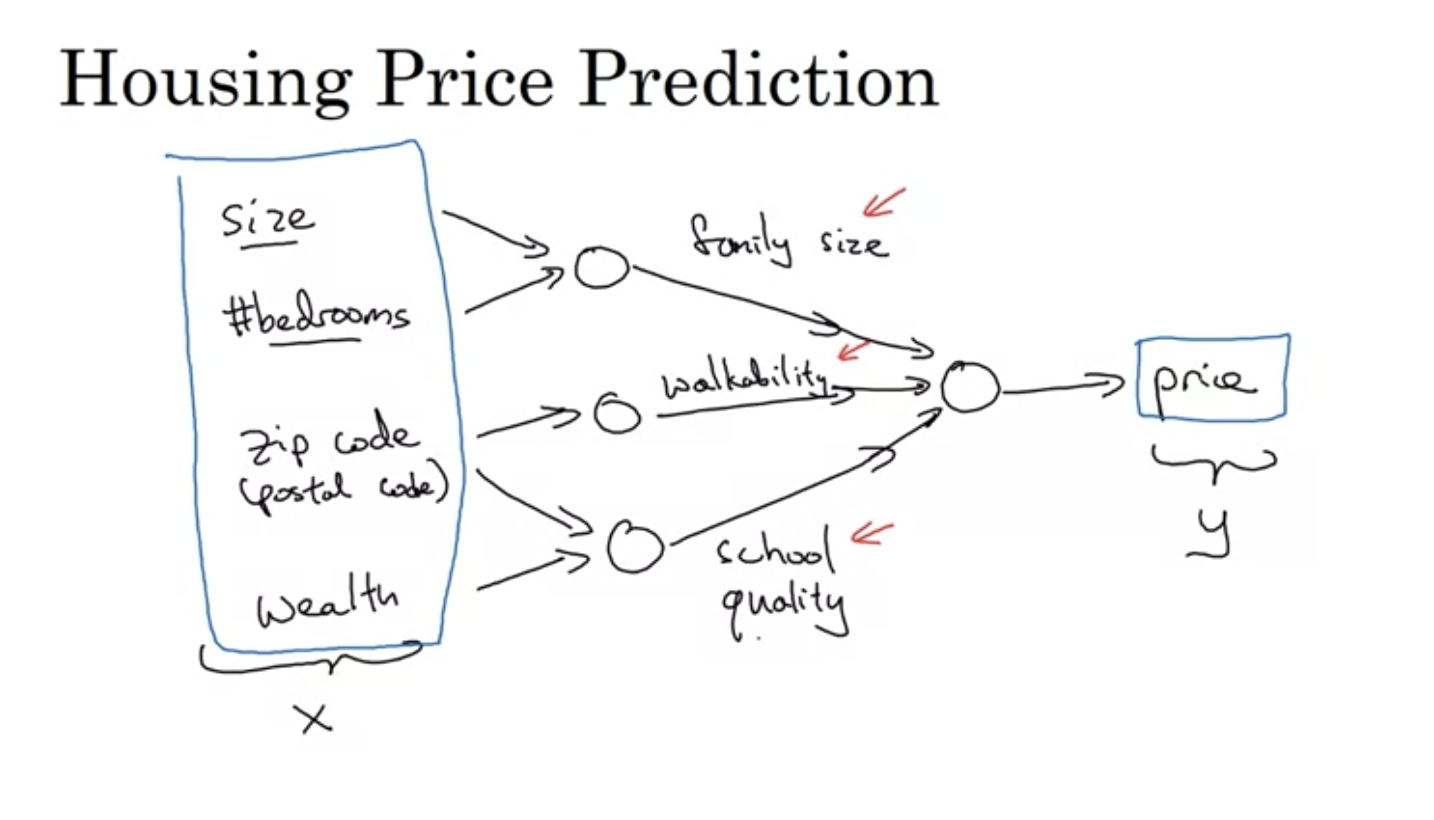 Housing Price Prediction
size
#bedrooms
zip code
(postal code)
wealth
x
family size
walkability
school
quality
price
y